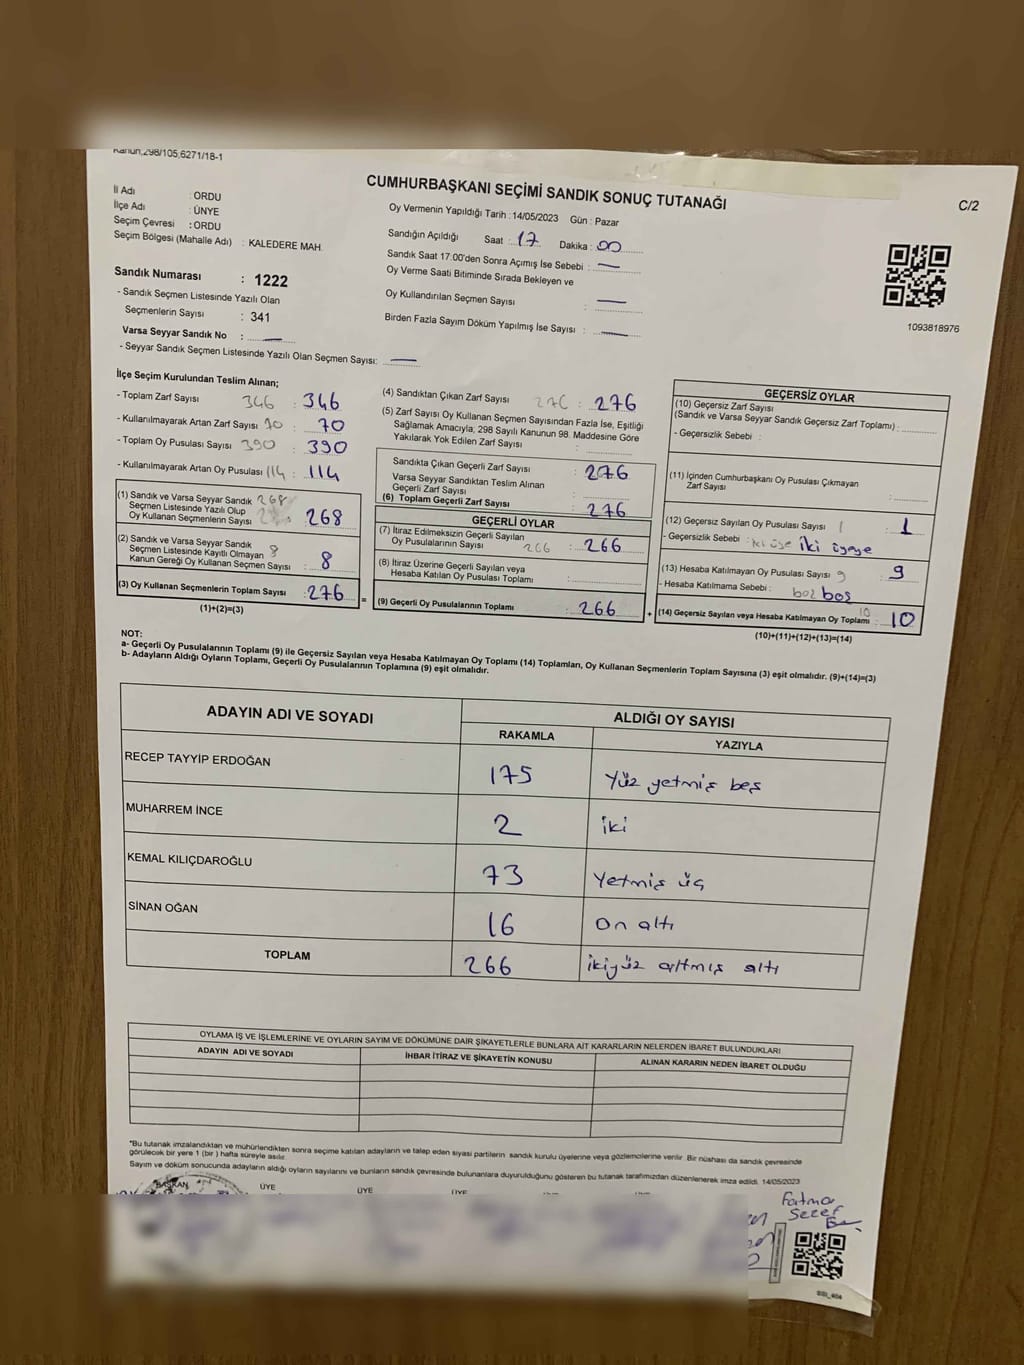 Kanun;298/105,6271/18-1
CUMHURBAŞKANI SEÇİMİ SANDIK SONUÇ TUTANAĞI
C/2
İl Adı : ORDU
İlçe Adı : ÜNYE
Seçim Çevresi : ORDU
Seçim Bölgesi (Mahalle Adı) : KALEDERE MAH.
Sandık Numarası : 1222
- Sandık Seçmen Listesinde Yazılı Olan
Seçmenlerin Sayısı : 341
Varsa Seyyar Sandık No : —
- Seyyar Sandık Seçmen Listesinde Yazılı Olan Seçmen Sayısı: —
Oy Vermenin Yapıldığı Tarih : 14/05/2023 Gün : Pazar
Sandığın Açıldığı Saat : 17 Dakika : 00
Sandık Saat 17:00'den Sonra Açımış İse Sebebi : —
Oy Verme Saati Bitiminde Sırada Bekleyen ve
Oy Kullandırılan Seçmen Sayısı : —
Birden Fazla Sayım Döküm Yapılmış İse Sayısı : —
1093818976
İlçe Seçim Kurulundan Teslim Alınan;
- Toplam Zarf Sayısı 346 : 346
- Kullanılmayarak Artan Zarf Sayısı 70 : 70
- Toplam Oy Pusulası Sayısı 390 : 390
- Kullanılmayarak Artan Oy Pusulası 114 : 114
(1) Sandık ve Varsa Seyyar Sandık 268
Seçmen Listesinde Yazılı Olup
Oy Kullanan Seçmenlerin Sayısı : 268
(2) Sandık ve Varsa Seyyar Sandık
Seçmen Listesinde Kayıtlı Olmayan 8
Kanun Gereği Oy Kullanan Seçmen Sayısı : 8
(3) Oy Kullanan Seçmenlerin Toplam Sayısı : 276
(1)+(2)=(3)
(4) Sandıktan Çıkan Zarf Sayısı 276 : 276
(5) Zarf Sayısı Oy Kullanan Seçmen Sayısından Fazla İse, Eşitliği
Sağlamak Amacıyla, 298 Sayılı Kanunun 98. Maddesine Göre
Yakılarak Yok Edilen Zarf Sayısı :
Sandıkta Çıkan Geçerli Zarf Sayısı : 276
Varsa Seyyar Sandıktan Teslim Alınan
Geçerli Zarf Sayısı :
(6) Toplam Geçerli Zarf Sayısı : 276
GEÇERLİ OYLAR
(7) İtiraz Edilmeksizin Geçerli Sayılan
Oy Pusulalarının Sayısı 266 : 266
(8) İtiraz Üzerine Geçerli Sayılan veya
Hesaba Katılan Oy Pusulası Toplamı :
= (9) Geçerli Oy Pusulalarının Toplamı : 266 +
GEÇERSİZ OYLAR
(10) Geçersiz Zarf Sayısı
(Sandık ve Varsa Seyyar Sandık Geçersiz Zarf Toplamı) :
- Geçersizlik Sebebi :
(11) İçinden Cumhurbaşkanı Oy Pusulası Çıkmayan
Zarf Sayısı :
(12) Geçersiz Sayılan Oy Pusulası Sayısı 1 : 1
- Geçersizlik Sebebi : iki üye iki üyeye
(13) Hesaba Katılmayan Oy Pusulası Sayısı 9 : 9
- Hesaba Katılmama Sebebi : boş boş
10
(14) Geçersiz Sayılan veya Hesaba Katılmayan Oy Toplamı : 10
(10)+(11)+(12)+(13)=(14)
NOT:
a- Geçerli Oy Pusulalarının Toplamı (9) ile Geçersiz Sayılan veya Hesaba Katılmayan Oy Toplamı (14) Toplamları, Oy Kullanan Seçmenlerin Toplam Sayısına (3) eşit olmalıdır. (9)+(14)=(3)
b- Adayların Aldığı Oyların Toplamı, Geçerli Oy Pusulalarının Toplamına (9) eşit olmalıdır.
ADAYIN ADI VE SOYADI ALDIĞI OY SAYISI
RAKAMLA YAZIYLA
RECEP TAYYİP ERDOĞAN 175 Yüz yetmiş beş
MUHARREM İNCE 2 iki
KEMAL KILIÇDAROĞLU 73 Yetmiş üç
SİNAN OĞAN 16 On altı
TOPLAM 266 ikiyüz altmış altı
OYLAMA İŞ VE İŞLEMLERİNE VE OYLARIN SAYIM VE DÖKÜMÜNE DAİR ŞİKAYETLERLE BUNLARA AİT KARARLARIN NELERDEN İBARET BULUNDUKLARI
ADAYIN ADI VE SOYADI İHBAR İTİRAZ VE ŞİKAYETİN KONUSU ALINAN KARARIN NEDEN İBARET OLDUĞU
*Bu tutanak imzalandıktan ve mühürlendikten sonra seçime katılan adayların ve talep eden siyasi partilerin sandık kurulu üyelerine veya gözlemcilerine verilir. Bir nüshası da sandık çevresinde
görülecek bir yere 1 (bir) hafta süreyle asılır.
Sayım ve döküm sonucunda adayların aldığı oyların sayılarını ve bunların sandık çevresinde bulunanlara duyurulduğunu gösteren bu tutanak tarafımızdan düzenlenerek imza edildi. 14/05/2023
BAŞKAN ÜYE ÜYE ÜYE
Fatma
Sezer